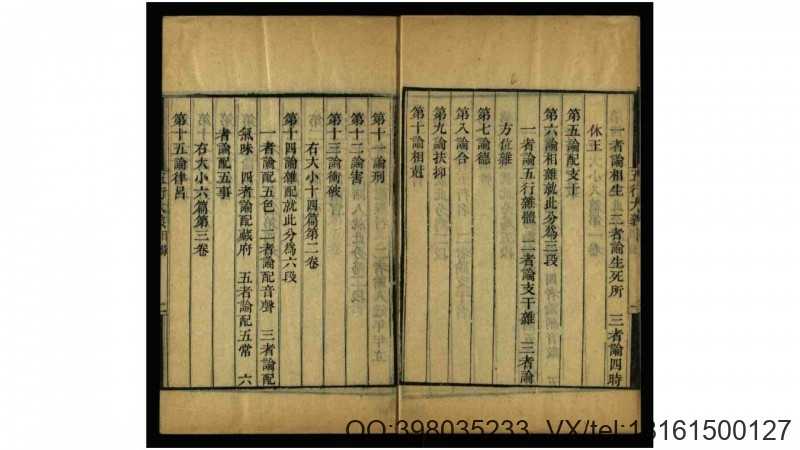 一者論相生　二者論生死所　三者論四時
休王
第五論配支干
第六論相雜就此分爲三段
一者論五行雜體　二者論支干雜　三者論
方位雜
第七論德
第八論合
第九論扶抑
第十論相尅
第十一論刑
第十二論害
第十三論衝破
右大小十四篇第二卷
第十四論雜配就此分爲六段
一者論配五色　二者論配音聲　三者論配
氣味　四者論配藏府　五者論配五常　六
者論配五事
右大小六篇第三卷
第十五論律呂
QQ:398035233　VX/tel:13161500127